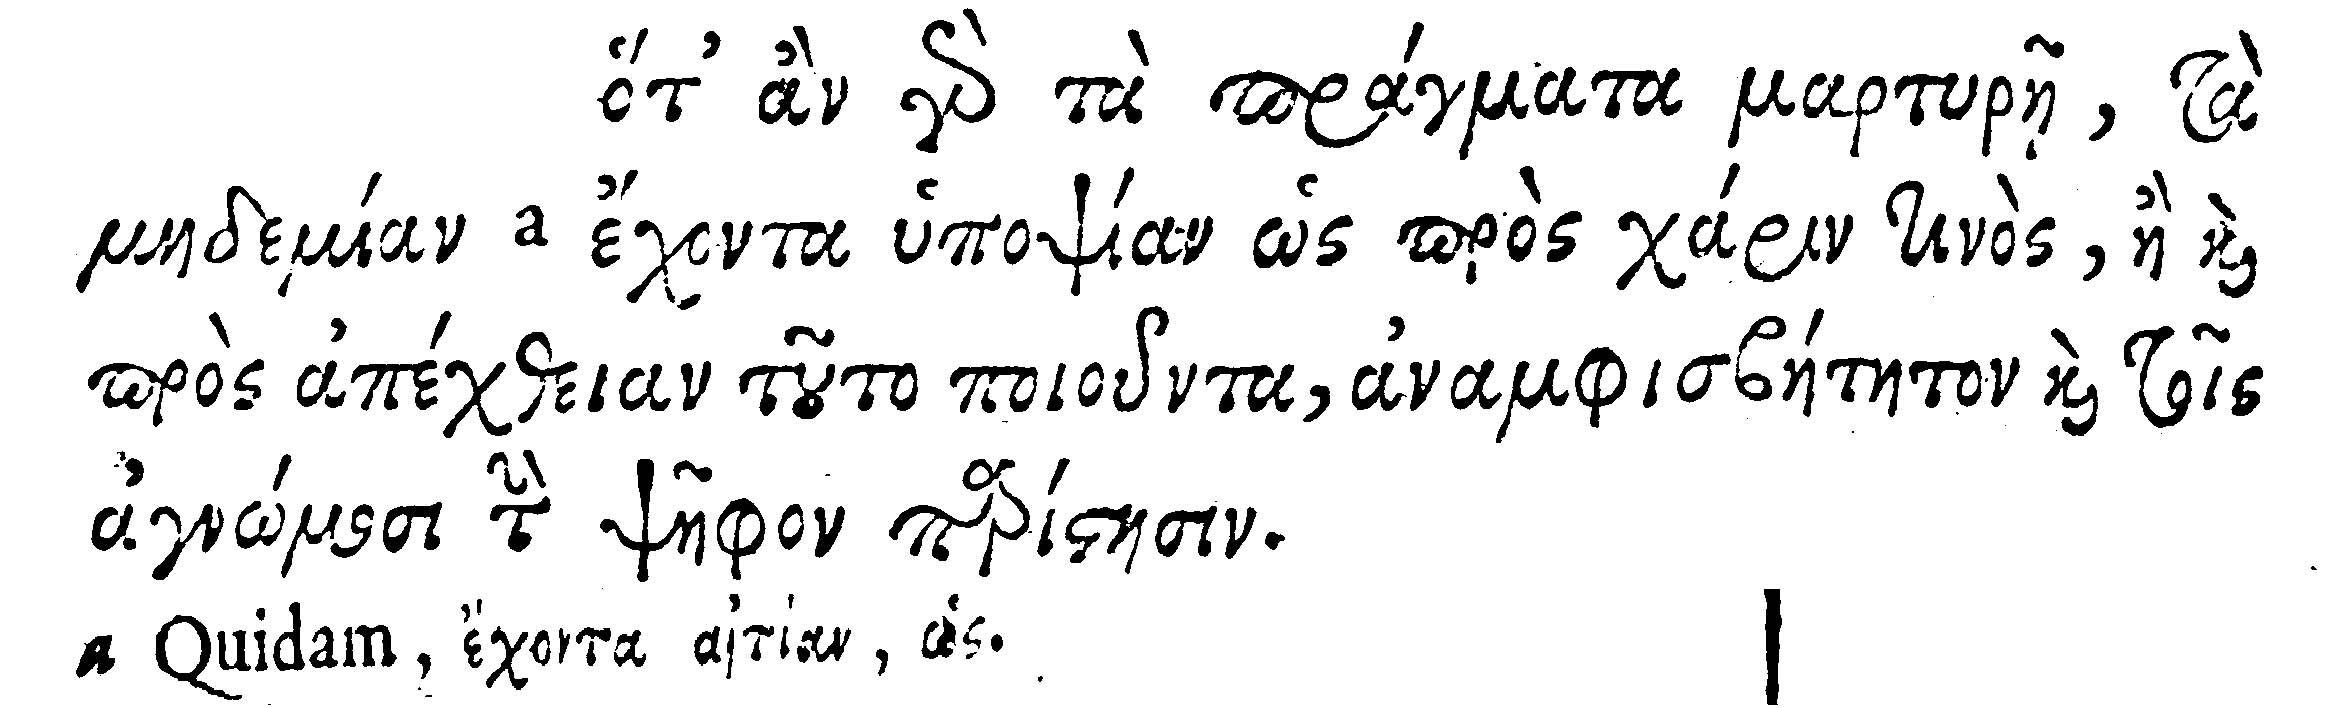 ὅτ’ ἂν γὰρ τὰ πράγματα μαρτυρῇ, τὰ
μηδεμίαν a ἔχοντα ὑποψίαν ὡς πρὸς χάριν τινὸς, ἢ καὶ
πρὸς ἀπέχθειαν τοῦτο ποιοῦντα, ἀναμφισβήτητον καὶ τοῖς
ἀγνώμοσι τὴν ψῆφον παρίστησιν.
a Quidam, ἔχοντα αἰτίαν, ὡς.